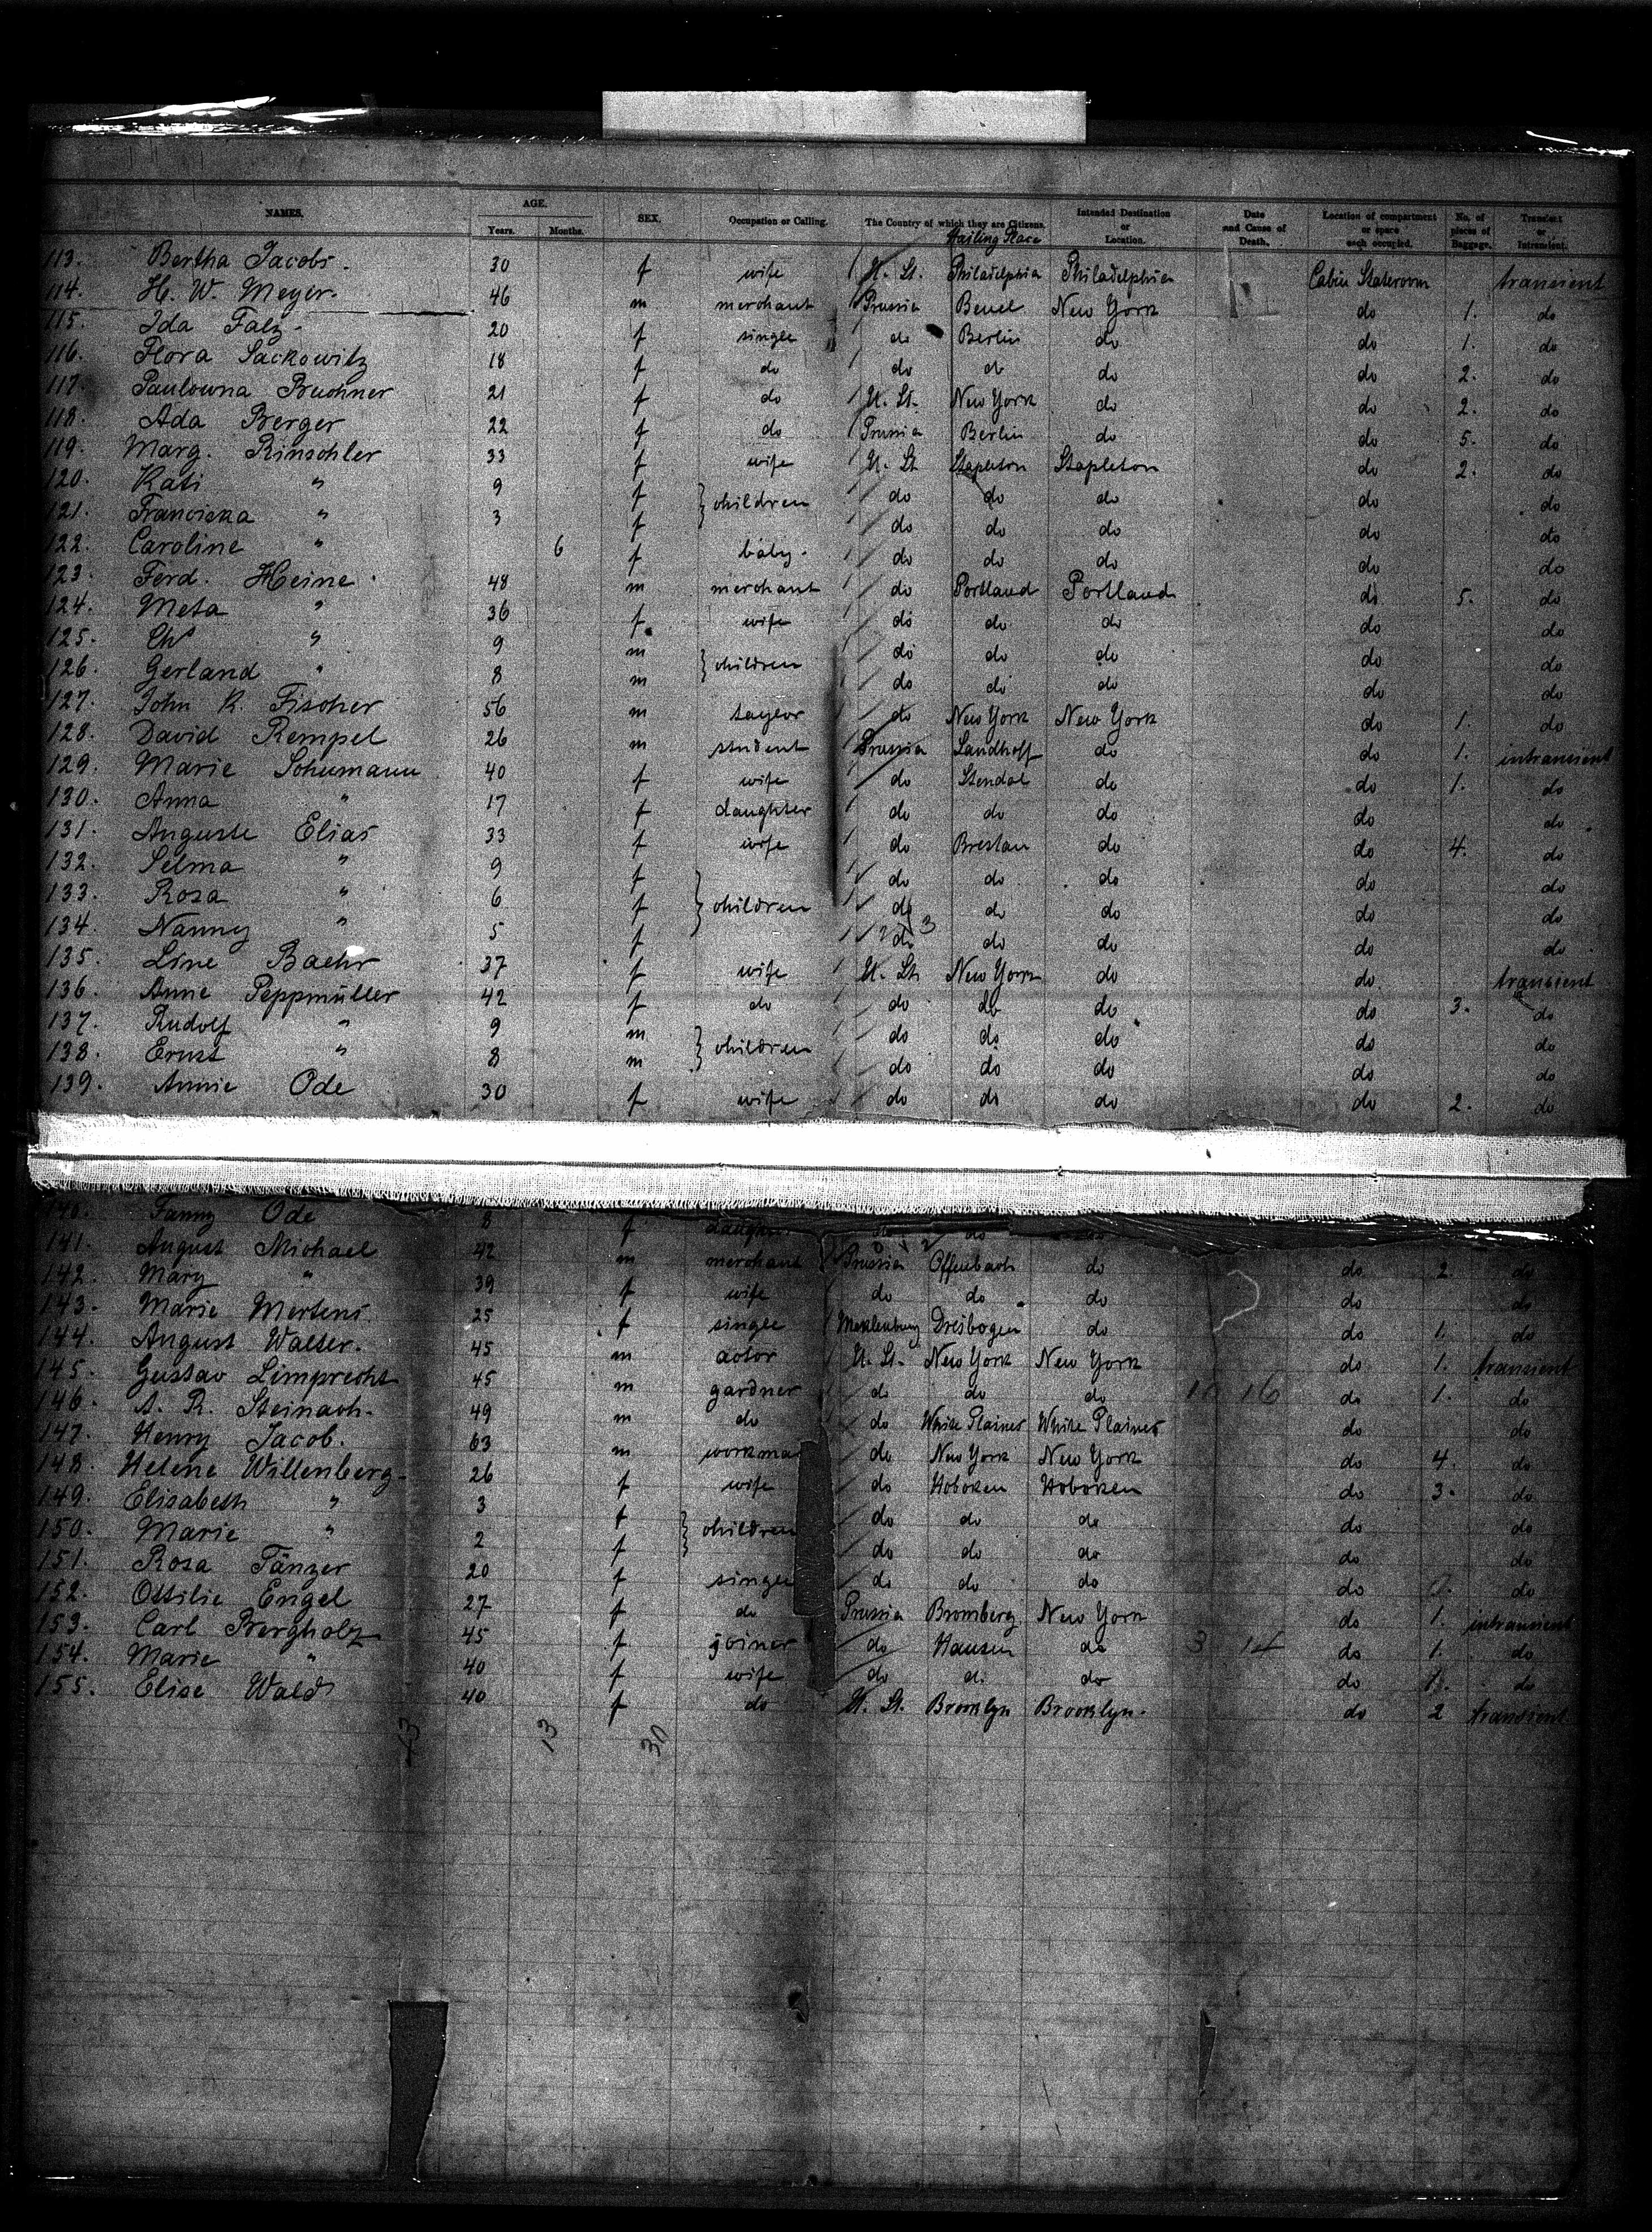 NAMES. AGE. Years. Months. SEX. Occupation or Calling. The Country of which they are Citizens. Hailing Place Intended Destination or Location. Date and Cause of Death. Location of compartment or space each occupied. No. of pieces of Baggage. Transient or Intransient.
113. Bertha Jacobs. 30 f wife U. St. Philadelphia Philadelphia Cabin Stateroom transient
114. H. W. Meyer. 46 m merchant Prussia Beuel New York do 1. do
115. Ida Falz. 20 f single do Berlin do do 1. do
116. Flora Sackowitz 18 f do do do do do 2. do
117. Paulowna Bruchner 21 f do U. St. New York do do 2. do
118. Ada Berger 22 f do Prussia Berlin do do 5. do
119. Marg. Rinschler 33 f wife U. St Stapleton Stapleton do 2. do
120. Kati " 9 f children do do do do do
121. Franciska " 3 f do do do do do
122. Caroline " 6 f baby. do do do do do
123. Ferd. Heine. 48 m merchant do Portland Portland do 5. do
124. Meta " 36 f wife do do do do do
125. Chs " 9 m children do do do do do
126. Gerland " 8 m do do do do do
127. John R. Fischer 56 m taylor do New York New York do 1. do
128. David Rempel 26 m student Prussia Landhoff do do 1. intransient
129. Marie Schumann 40 f wife do Stendal do do 1. do
130. Anna " 17 f daughter do do do do do
131. Auguste Elias 33 f wife do Breslau do do 4. do
132. Selma " 9 f do do do do do
133. Rosa " 6 f children do do do do do
134. Nanny " 5 f do do do do do
135. Line Baehr 37 f wife U. St. New York do do transient
136. Anne Peppmüller 42 f do do do do do 3. do
137. Rudolf " 9 m children do do do do do
138. Ernst " 8 m do do do do do
139. Annie Ode 30 f wife do do do do 2. do
140. Fanny Ode 8 f daughter do do
141. August Michael 42 m merchant Prussia Offenbach do do 2. do
142. Mary " 39 f wife do do do do do
143. Marie Mertens 25 f single Mecklenburg Dreibogen do do 1. do
144. August Walter. 45 m actor U. St. New York New York do 1. transient
145. Gustav Limprecht 45 m gardner do do do 16 do 1. do
146. A. R. Steinach. 49 m do do White Plaines White Plaines do do
147. Henry Jacob. 63 m workma do New York New York do 4. do
148. Helene Willenberg. 26 f wife do Hoboken Hoboken do 3. do
149. Elisabeth " 3 f children do do do do do
150. Marie " 2 f do do do do do
151. Rosa Tänzer 20 f single do do do do do
152. Ottilie Engel 27 f do Prussia Bromberg New York do 1. intransient
153. Carl Bergholz 45 f joiner do Hausen do 3 14 do 1. do
154. Marie " 40 f wife do do do do 1. do
155. Elise Wald 40 f do U. St. Brooklyn Brooklyn. do 2 transient
43 13 30